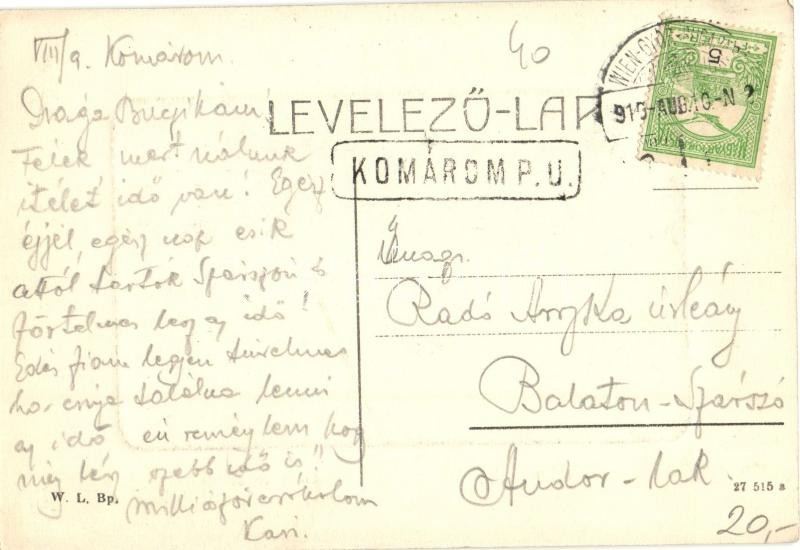 VIII/9. Komárom.
Drága Bucikám!
Félek mert nálunk
ítélet idő van! Egész
éjjel, egész nap esik
attól tartok Szárszón is
förtelmes lesz az idő!
Édes fiam legyen türelmes
ha csúnya találna lenni
az idő én remélem hogy
még lesz szebb idő is!!
milliószor csókolom
Kari.
W. L. Bp.
40
LEVELEZŐ-LAP
KOMÁROM P.U.
WIEN-GY
913-AUG10-N 2
5
Nags.
Radó Anyka úrleány
Balaton-Szárszó
Andor-lak.
27 515 a
20,-